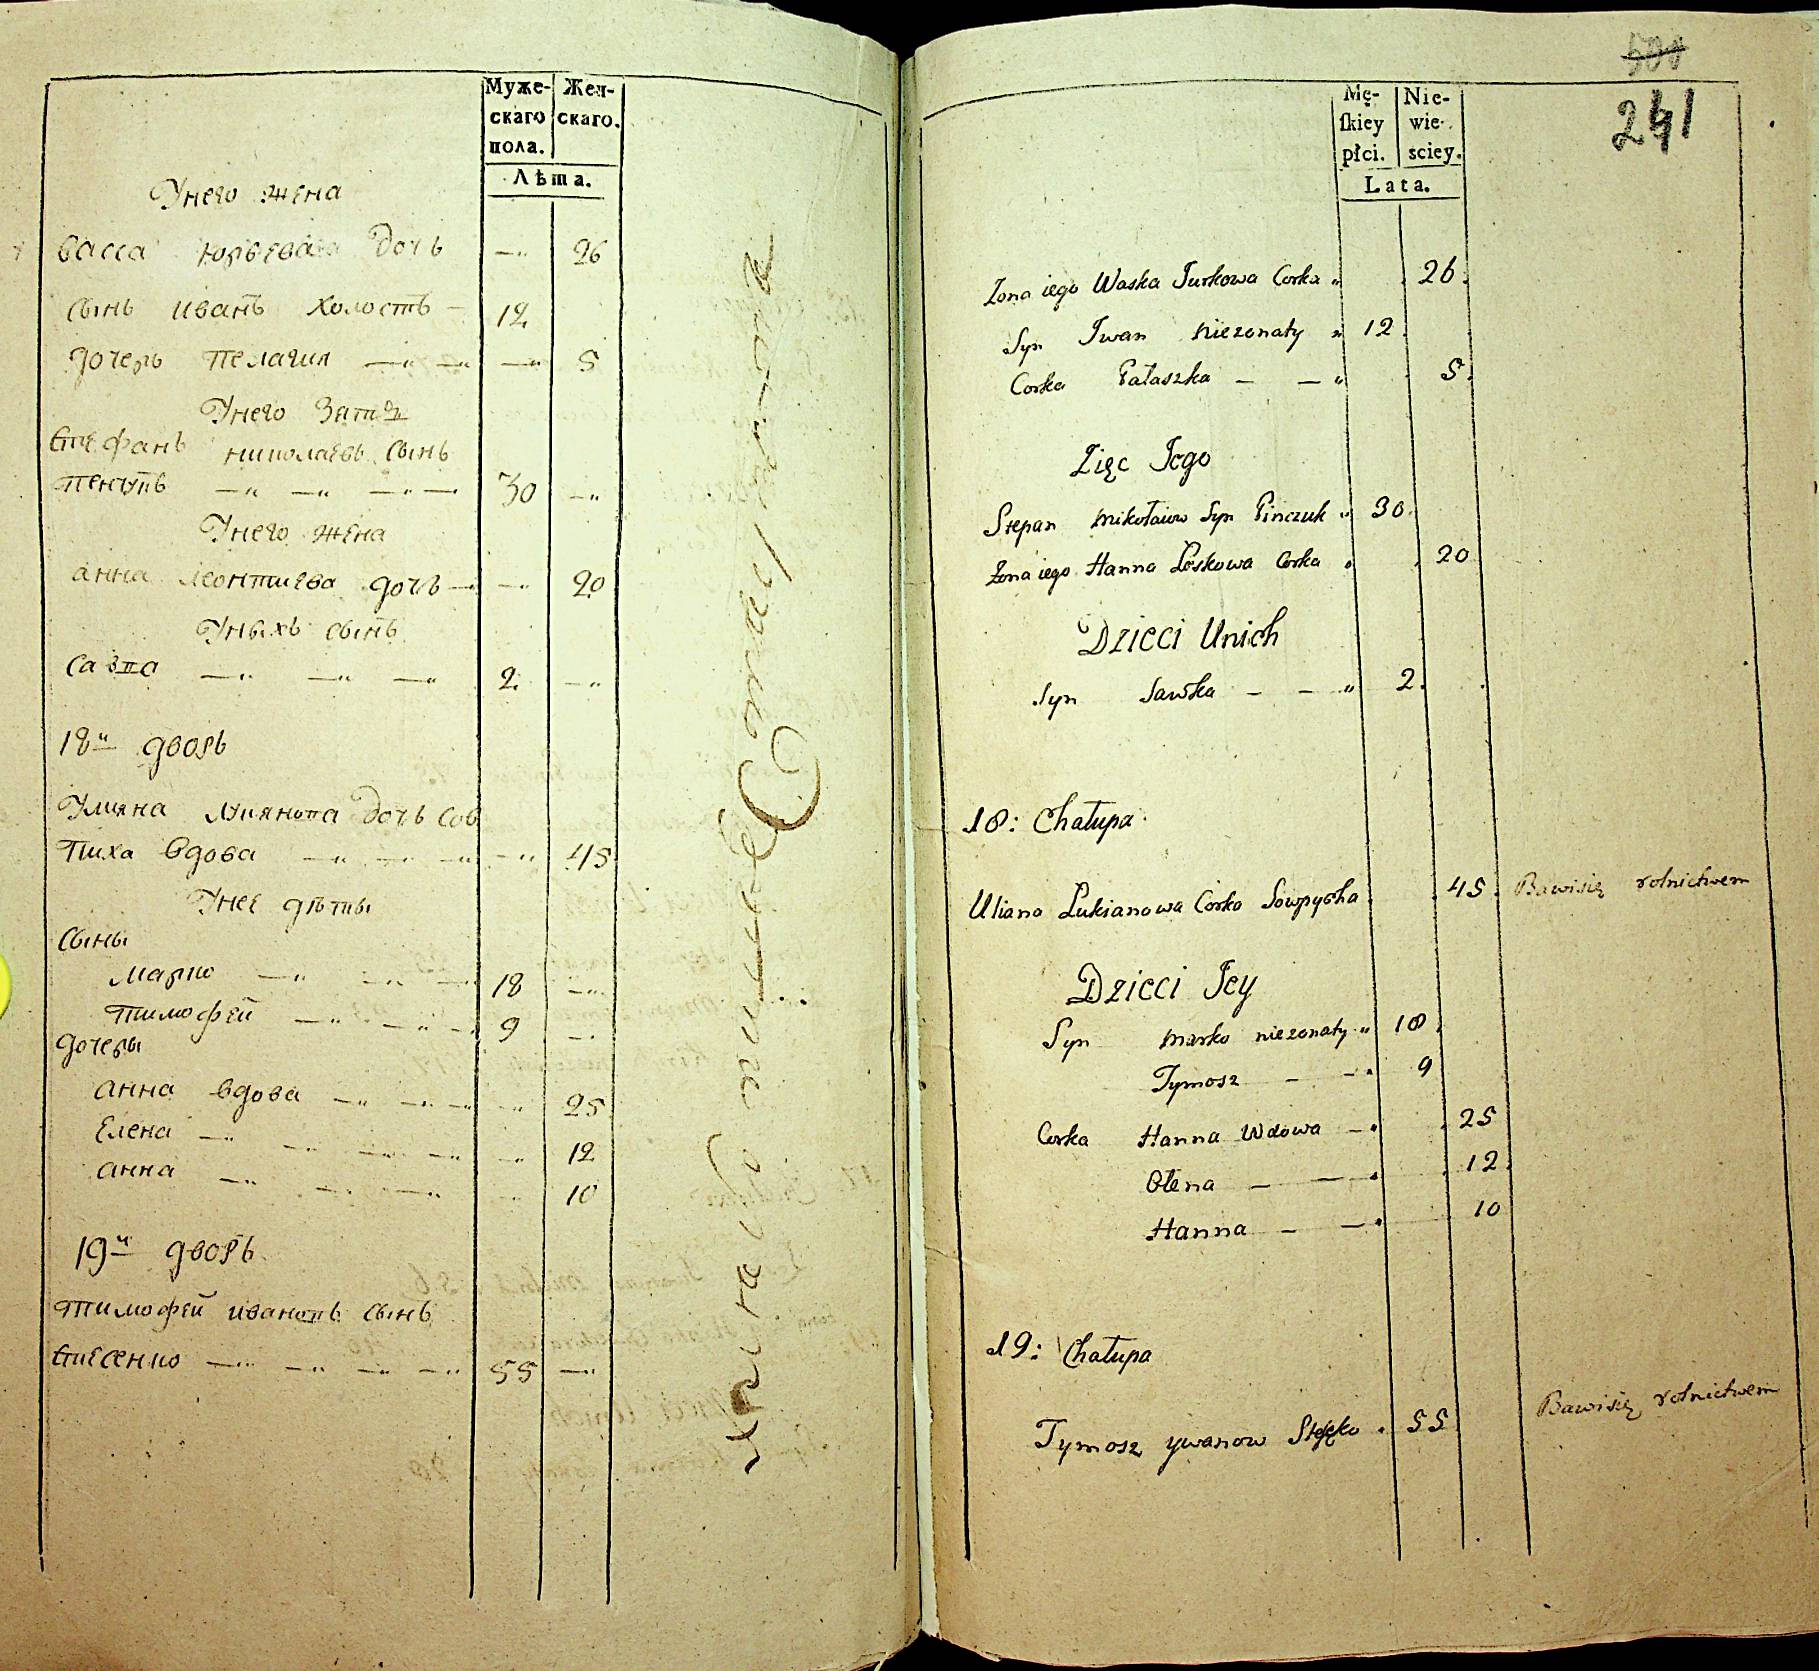 Муже-
скаго
пола.
Жен-
скаго.
Лѣта.
Унего жена
васса юрьева дочь —„ 26
сынъ иванъ холостъ — 12
дочерь пелагия —„ —„ —„ 5
Унего зять
стефанъ николаевъ сынъ
пенчукъ —„ —„ —„ — 30 —„
Унего жена
анна леонтиева дочь — —„ 20
Уныхъ сынъ
савка —„ —„ —„ 2. —„
18й дворъ
Улияна лукянова дочь сов
пиха вдова —„ —„ —„ —„ 45
Унее дѣти
сыны
марко —„ —„ — 18 —„
тимофей —„ —„ — 9 —„
дочеры
анна вдова —„ —„ —„ —„ 25
Елена —„ —„ —„ —„ —„ 12
анна —„ —„ —„ —„ 10
19й дворъ
тимофей ивановъ сынъ
стесенко —„ —„ —„ —„ 55 —„
500
241
Mę-
ſkiey
płci.
Nie-
wie-
sciey.
Lata.
Zona iego Waska Jurkowa Corka „ 26.
Syn Iwan niezonaty „ 12.
Corka Pałaszka — — „ 5.
Zięc Jego
Stepan Mikołaiow Syn Pinczuk „ 30.
Zona iego Hanna Leskowa Corka „ 20
Dzieci Unich
Syn Sawka — — „ 2.
18: Chałupa
Uliana Łukianowa Corka Sowpycha 45. Bawisię rolnictwem
Dzieci Jey
Syn Marko niezonaty „ 18.
Tymosz — — „ 9
Corka Hanna Wdowa — „ 25
Ołena — — „ 12.
Hanna — — „ 10
19: Chałupa
Tymosz ywanow . 55 Bawisię rolnictwem